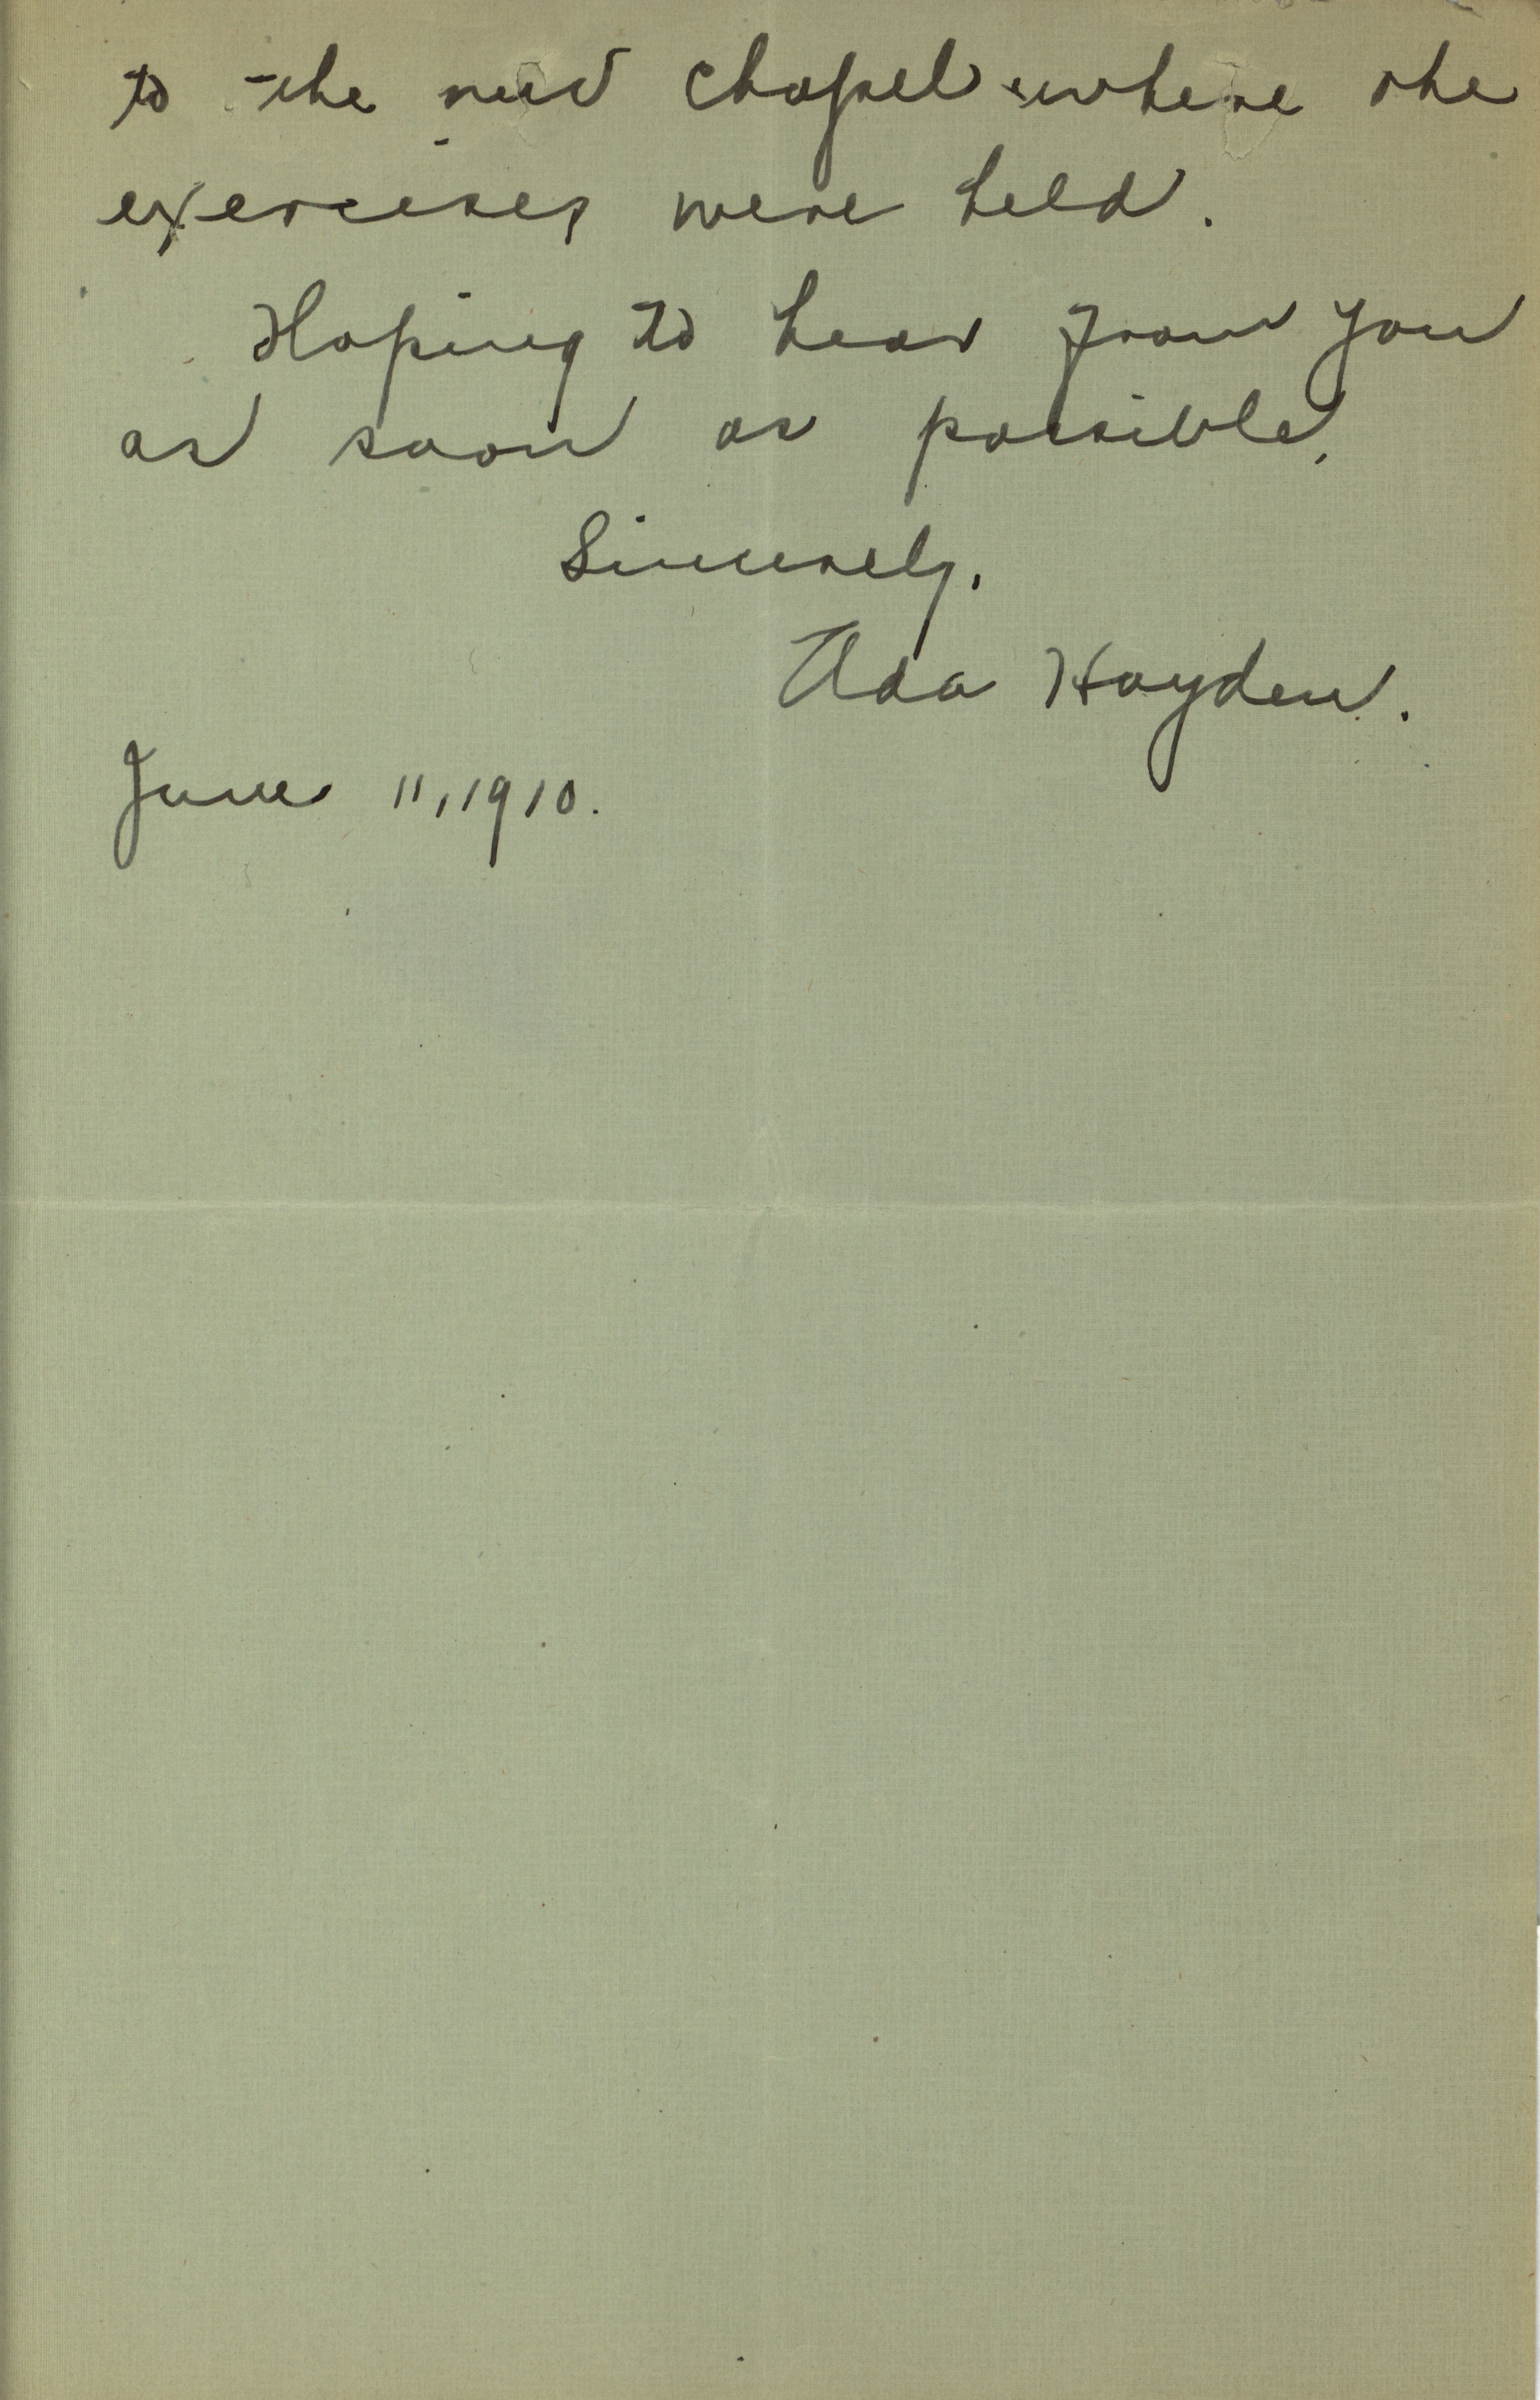 to the new chapel where the
exercises were held.
Hoping to hear from you
as soon as possible,
Sincerely,
Ada Hayden.
June 11, 1910.